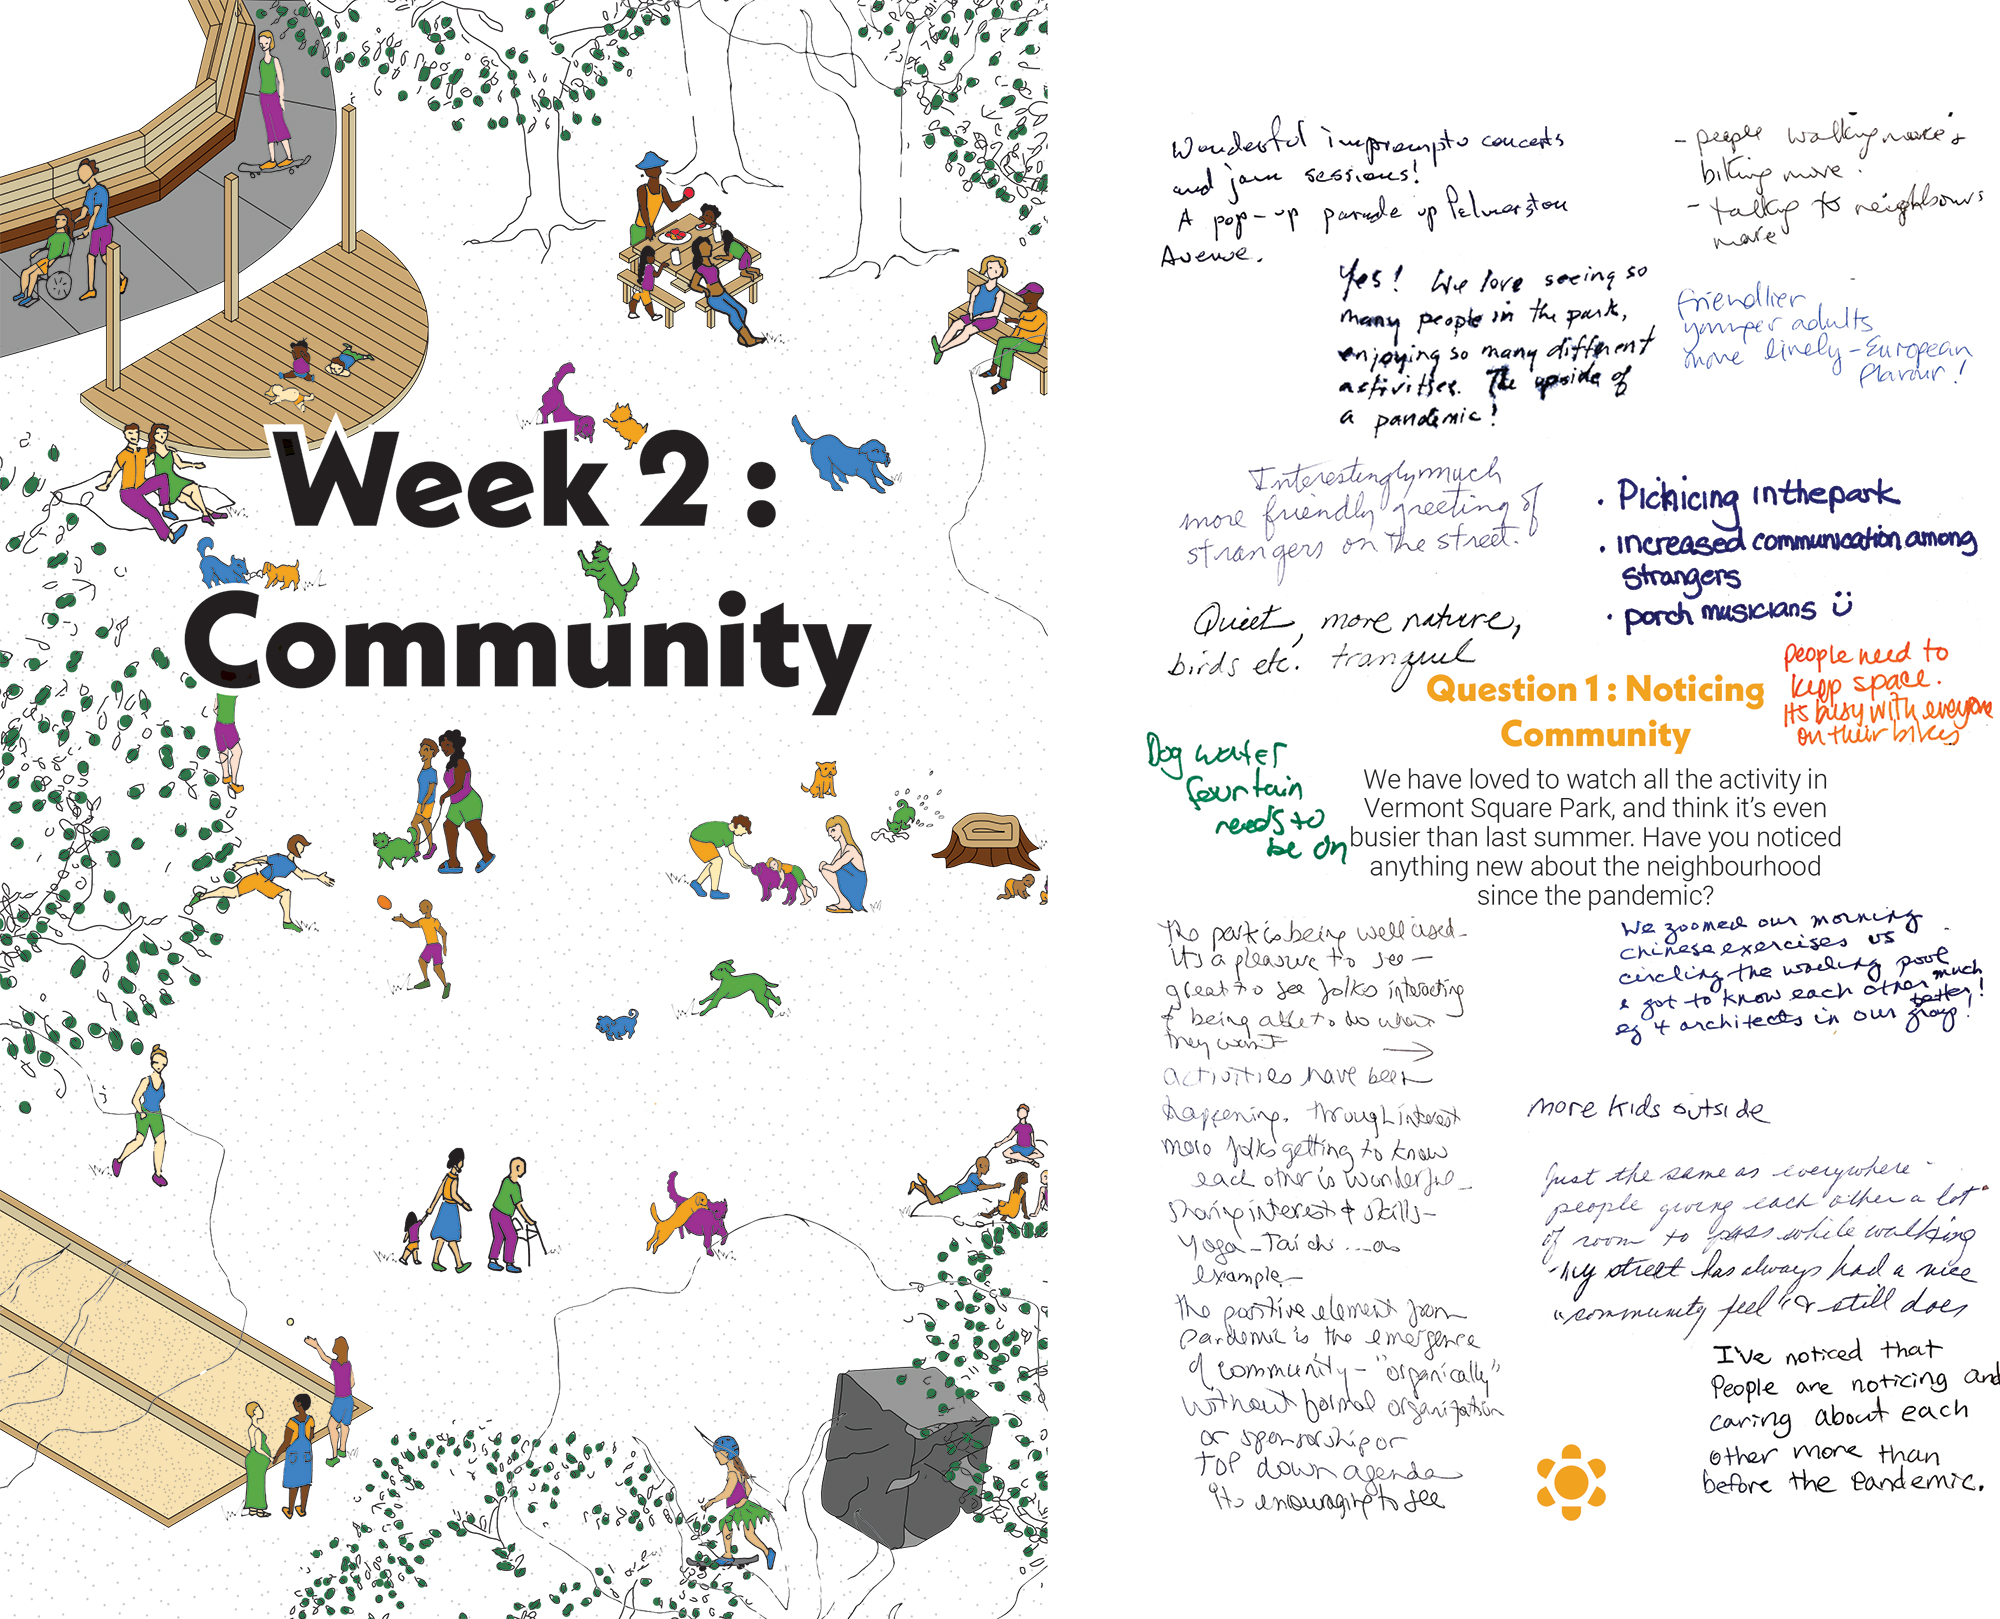 Week 2 :
Community
Wonderful impromptu concerts
and jam sessions!
A pop-up parade up Palmerston
Avenue.
- people walking more &
biking more.
- talking to neighbours
more
Yes! We love seeing so
many people in the park,
enjoying so many different
activities. The upside of
a pandemic!
friendlier
younger adults
more lively - European
flavour!
Interestingly much
more friendly greeting of
strangers on the street.
• Picnicing in the park
• increased communication among
strangers
• porch musicians ü
Quiet, more nature,
birds etc. tranquil
people need to
keep space.
Its busy with everyone
on their bikes
Question 1 : Noticing
Community
Dog water
fountain
needs to
be on
We have loved to watch all the activity in
Vermont Square Park, and think it's even
busier than last summer. Have you noticed
anything new about the neighbourhood
since the pandemic?
The park is being well used -
It's a pleasure to see -
great to see folks interacting
& being able to do what
they want
→
activities have been
happening. Through interest
more folks getting to know
each other is wonderful -
sharing interest & skills -
Yoga - Tai chi ... as
example -
The positive element from
pandemic is the emergence
of community - "organically"
without formal organization
or sponsorship or
top down agenda
Its encouraging to see
We zoomed our morning
chinese exercises vs
circling the wading pool
& got to know each other much
better!
eg 4 architects in our group!
more kids outside
Just the same as everywhere -
people giving each other a lot
of room to pass while walking
- My street has always had a nice
"community feel" & still does
I've noticed that
People are noticing and
caring about each
other more than
before the Pandemic.